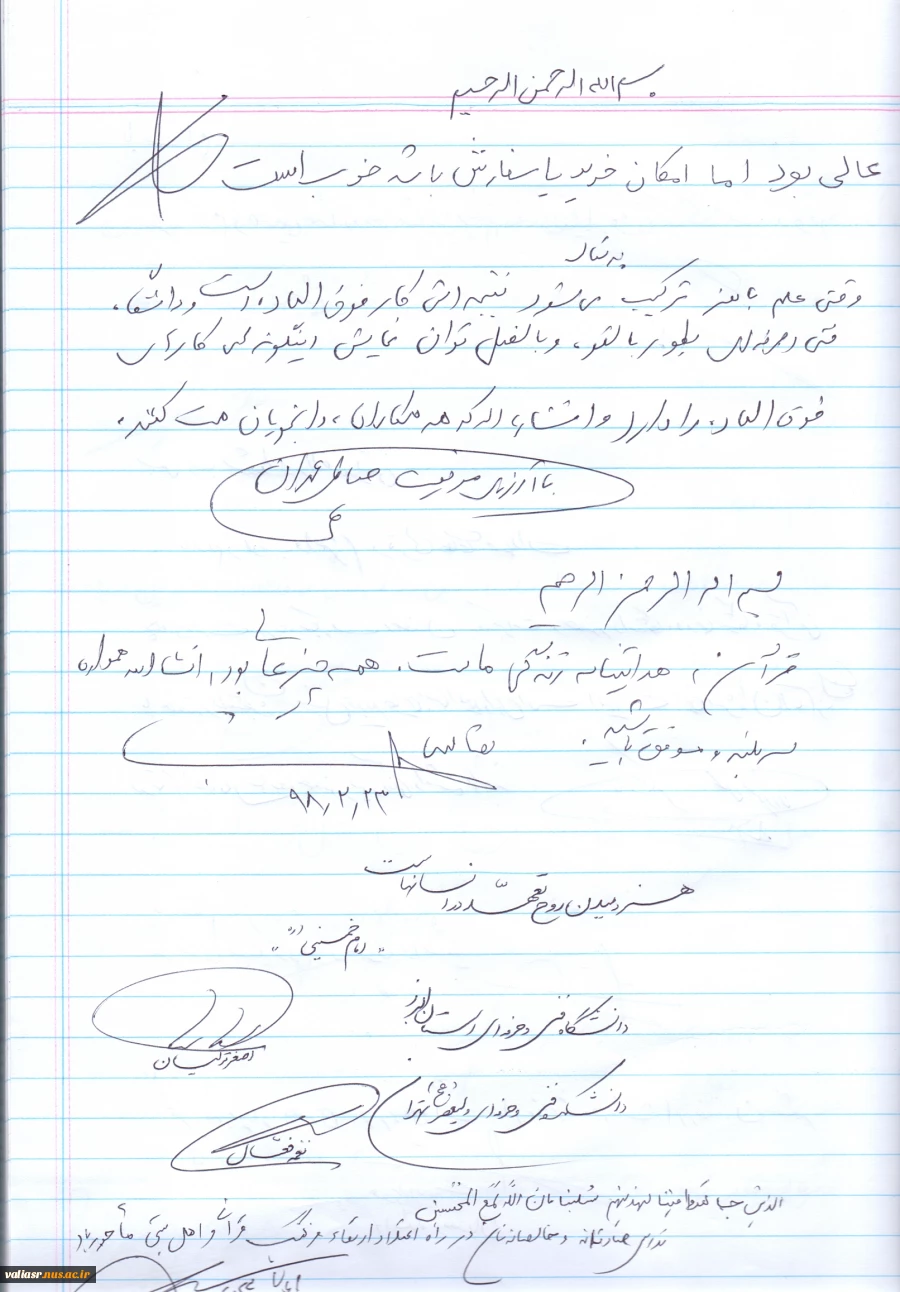 بسم الله الرحمن الرحیم
عالی بود اما امکان خرید یا سفارش باشه خوب است
به شمار
وقتی علم با هنر ترکیب می شود نتیجه اش کار فوق العاده است و دانشگاه
فنی و حرفه ای بطور بالقوه و بالفعل توان نمایش اینگونه کارهای
فوق العاده را دارد و انشاء الله که همکاران، دانشجویان همت کنند.
با آرزوی موفقیت
بسم اله الرحمن الرحیم
قرآن، هدایتنامه زندگی ماست. همه چیز عالی بود، انشاالله همواره
سربلند و موفق باشید.
۹۸,۲,۲۳
هنر دمیدن روح تعهد در انسانهاست
"امام خمینی (ره)"
دانشگاه فنی و حرفه ای استان البرز
اصغر ترکیان
دانشکده فنی و حرفه ای ولیعصر (عج) تهران
الذین جاهدوا فینا لنهدینهم سبلنا و ان الله لمع المحسنین
تلاش صادقانه و مخلصانه تان در راه اعتلاء و ارتقاء فرهنگ قرآنی و اهل بیتی مأجور باد
valiasr.nus.ac.ir